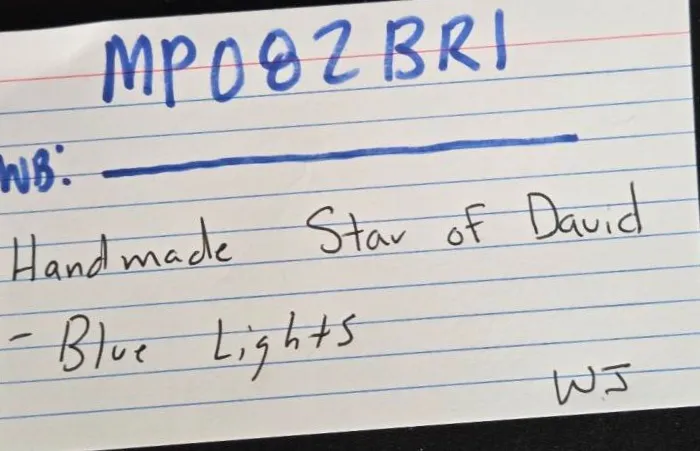 MP082BRI
WB:
Handmade Star of David
- Blue Lights
WJ